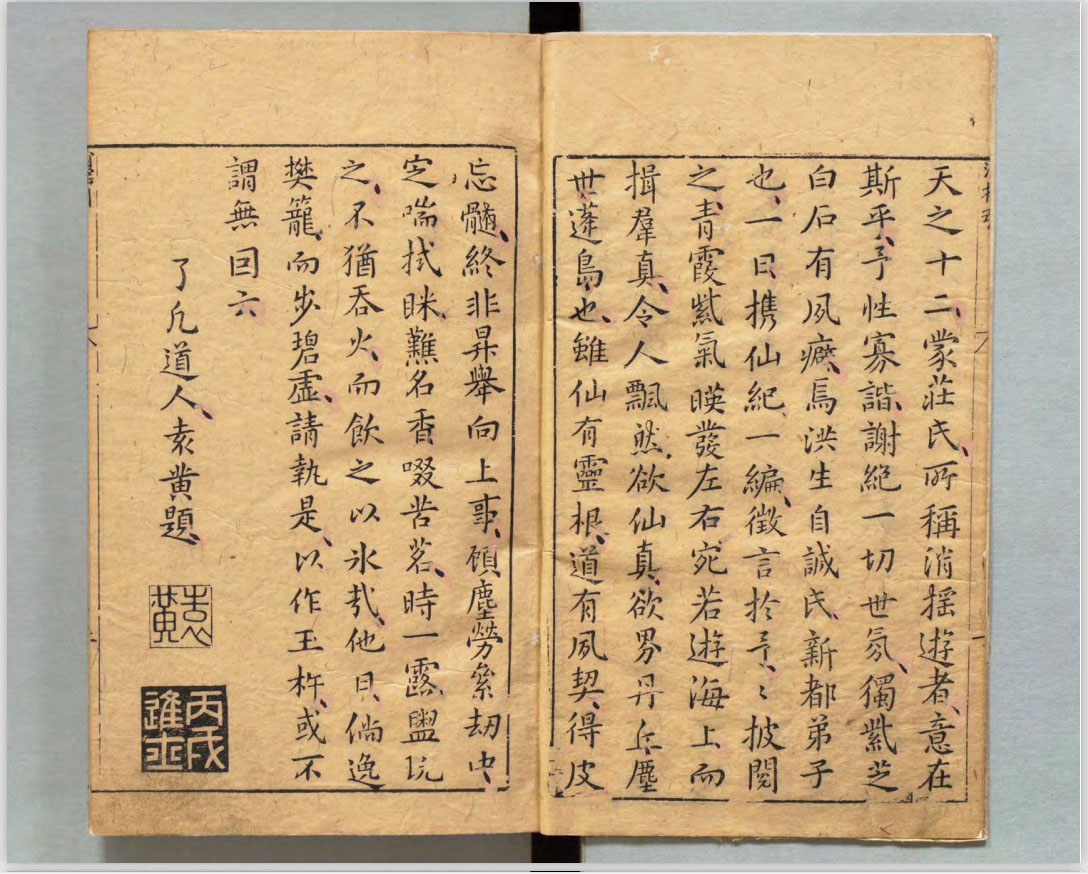 天之十二、蒙莊氏、所稱消搖遊者、意在
斯乎、予性寡諧、謝絕一切世氛、獨紫芝
白石有夙癖、焉洪生自誠氏、新都弟子
也、一日、攜仙紀一編、徵言於予、〻披閱
之、青霞紫氣暎發左右、宛若遊海上、而
揖羣真、令人飄然、欲仙真、欲畀丹丘、塵
世蓬島、也、雖仙有靈根、道有夙契、得皮
忘髓、終非昇舉向上事、頋塵勞絫劫中、
定喘拭眯、爇名香、啜苦茗、時一露盥玩
之、不猶吞火、而飲之以氷哉、他日、倘逸
樊籠、而步碧虛、請執是、以作玉杵、或不
謂無回六
了凡道人、袁黃題、
袁黃
丙戌進士